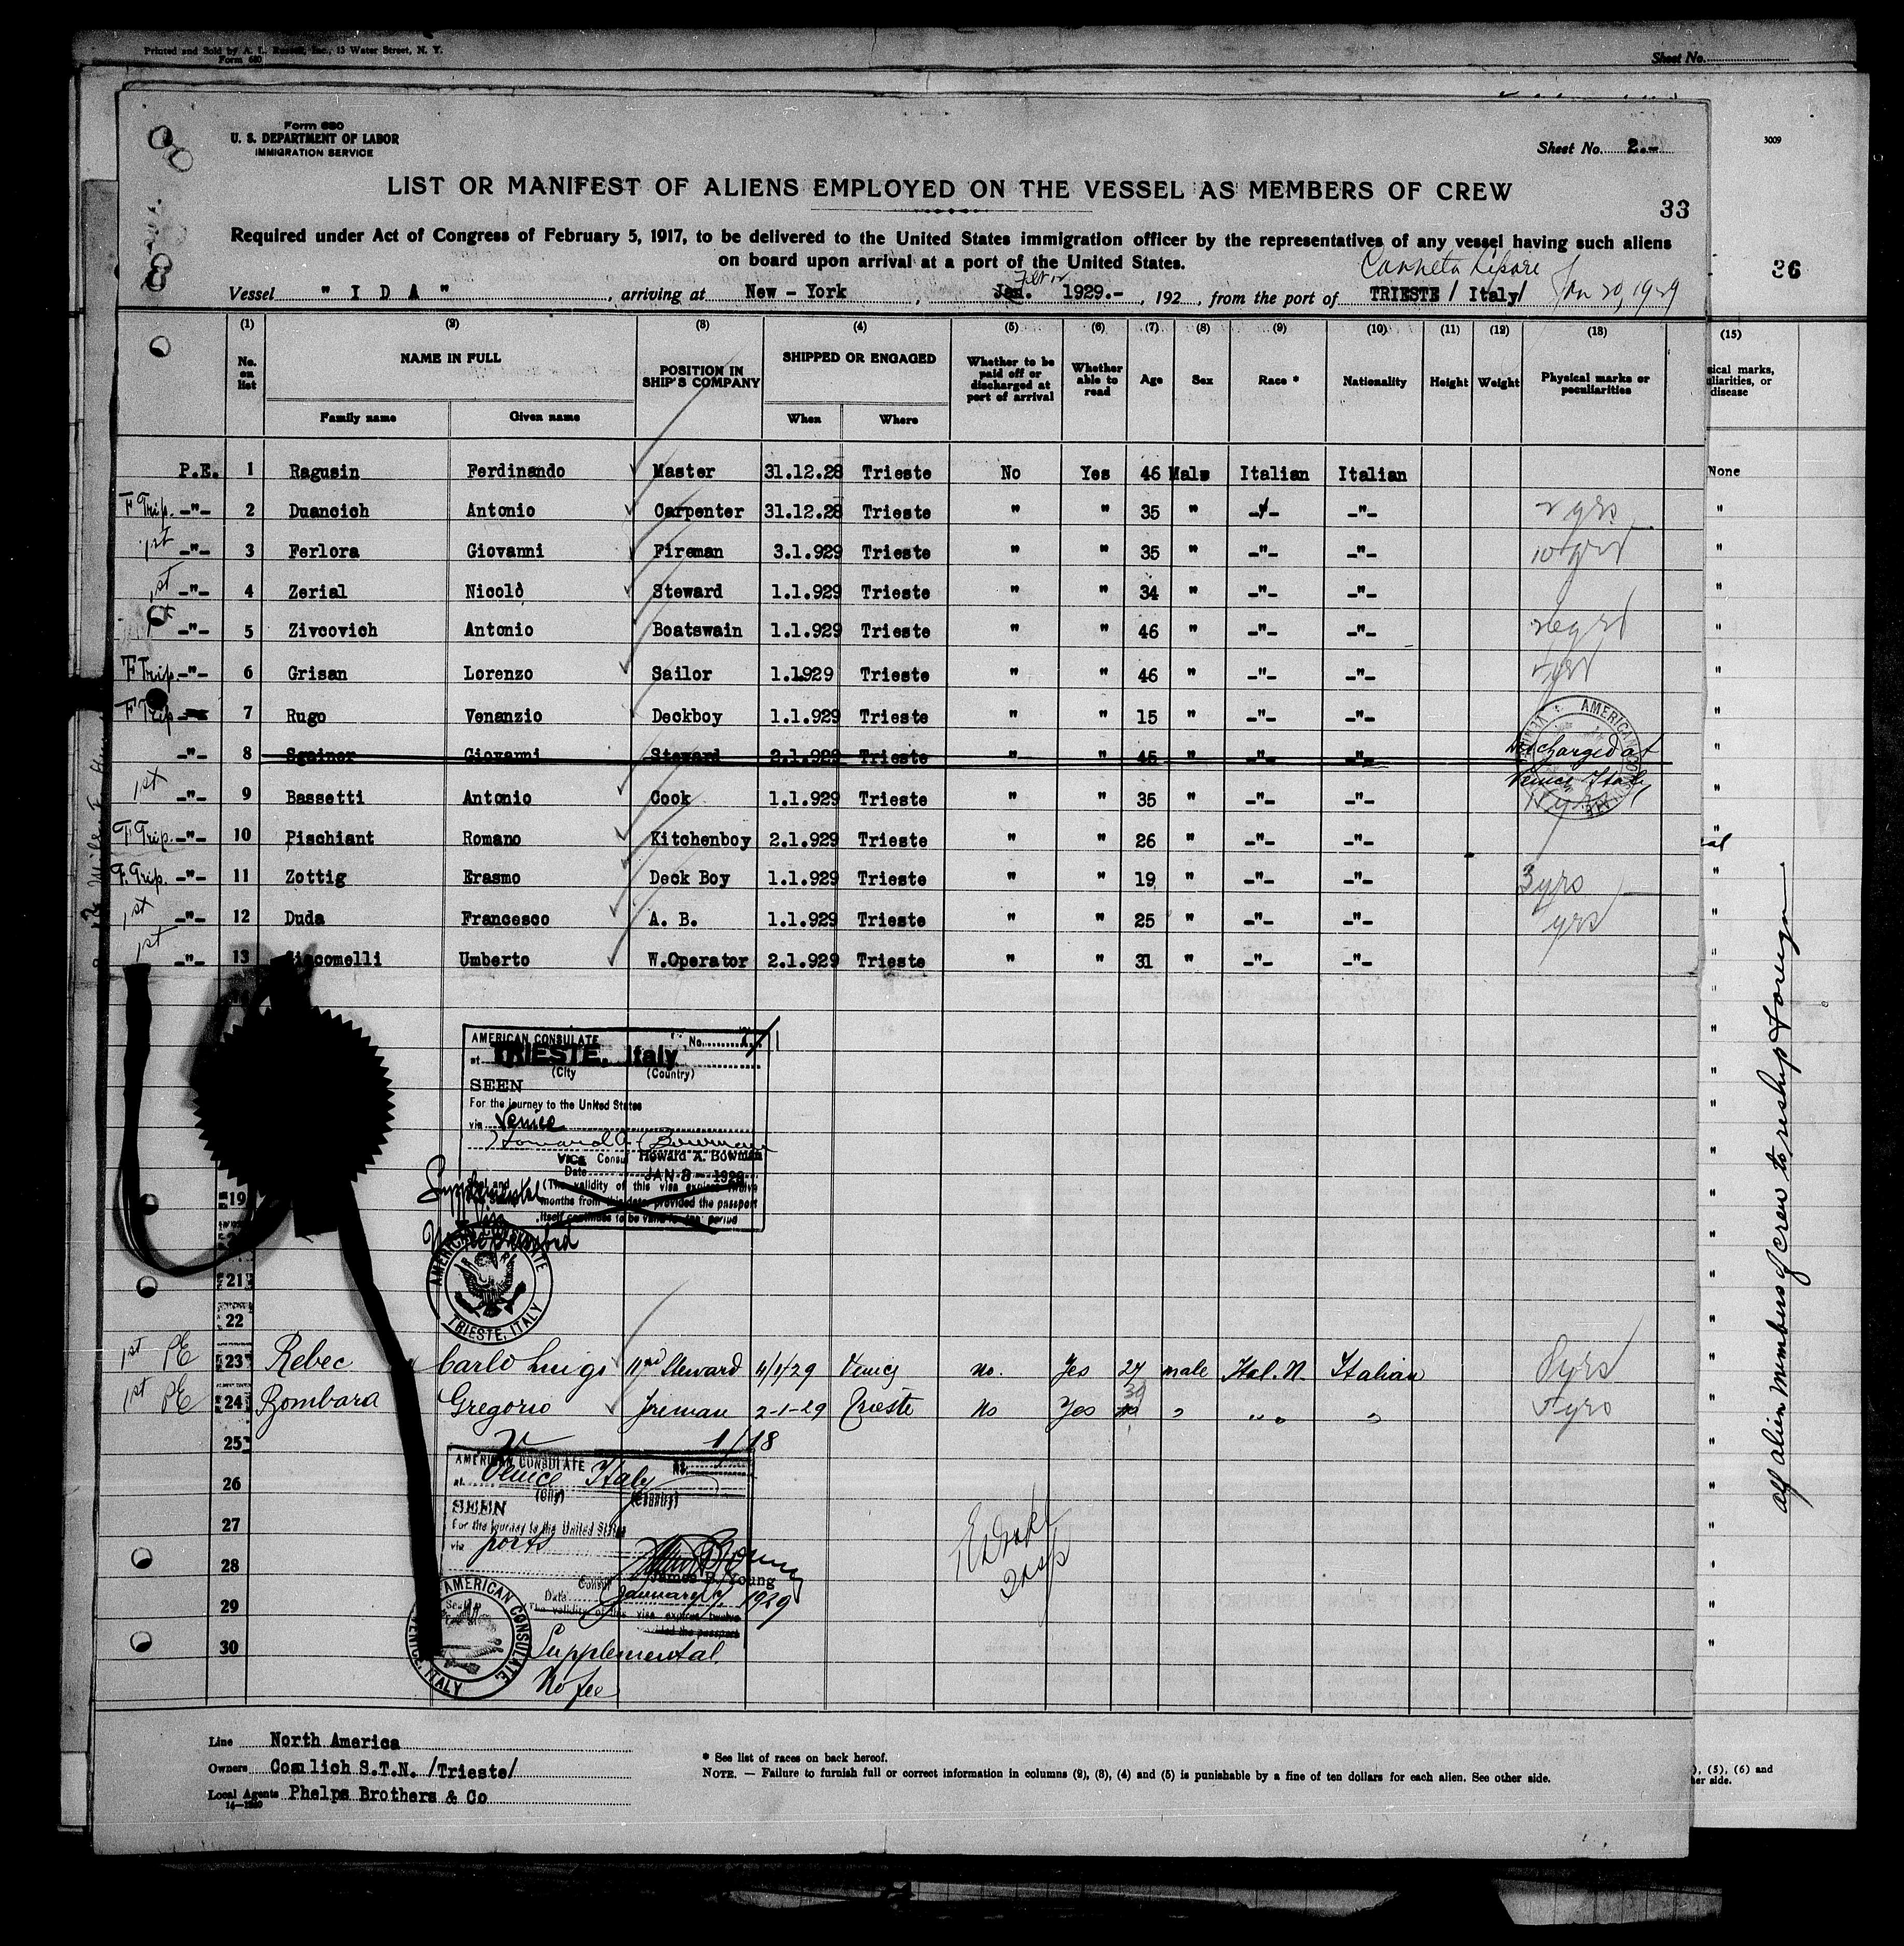 Printed and Sold by A. L. Russell, Inc., 13 Water Street, N. Y.
Form 680
Sheet No.
Form 680
U. S. DEPARTMENT OF LABOR
IMMIGRATION SERVICE
Sheet No. 2.-
3009
LIST OR MANIFEST OF ALIENS EMPLOYED ON THE VESSEL AS MEMBERS OF CREW
33
Required under Act of Congress of February 5, 1917, to be delivered to the United States immigration officer by the representatives of any vessel having such aliens
on board upon arrival at a port of the United States.
36
Vessel "IDA", arriving at New-York, Jan. 1929.-, 192 , from the port of TRIESTE / Italy/ Jan 20, 1929
(1) (2) (3) (4) (5) (6) (7) (8) (9) (10) (11) (12) (13) (15)
No. on list NAME IN FULL POSITION IN SHIP'S COMPANY SHIPPED OR ENGAGED Whether to be paid off or discharged at port of arrival Whether able to read Age Sex Race * Nationality Height Weight Physical marks or peculiarities
Family name Given name When Where
P.E. 1 Ragusin Ferdinando Master 31.12.28 Trieste No Yes 46 Male Italian Italian None
F Trip. -"- 2 Duancich Antonio Carpenter 31.12.28 Trieste " " 35 " -"- -"- 2 yrs "
1st -"- 3 Ferlora Giovanni Fireman 3.1.929 Trieste " " 35 " -"- -"- 10 yrs "
1st -"- 4 Zerial Nicolò Steward 1.1.929 Trieste " " 34 " -"- -"- "
-"- 5 Zivcovich Antonio Boatswain 1.1.929 Trieste " " 46 " -"- -"- "
F Trip. -"- 6 Grisan Lorenzo Sailor 1.1.929 Trieste " " 46 " -"- -"- "
F Trip 7 Rugo Venanzio Deckboy 1.1.929 Trieste " " 15 " -"- -"- "
-"- 8 Sgainer Giovanni Steward 2.1.929 Trieste " " 45 " -"- -"- Discharged at "
Venice Italy
1st -"- 9 Bassetti Antonio Cook 1.1.929 Trieste " " 35 " -"- -"- "
F Trip. -"- 10 Pischiant Romano Kitchenboy 2.1.929 Trieste " " 26 " -"- -"- "
F. Trip. -"- 11 Zottig Erasmo Deck Boy 1.1.929 Trieste " " 19 " -"- -"- 3 yrs "
1st -"- 12 Duda Francesco A. B. 1.1.929 Trieste " " 25 " -"- -"- yrs "
1st -"- 13 Giacomelli Umberto W.Operator 2.1.929 Trieste " " 31 " -"- -"- "
AMERICAN CONSULATE No.
at TRIESTE, Italy
(City (Country)
SEEN
For the journey to the United States
via Venice
Howard A. Bowman
VICE Consul Howard A. Bowman
Date JAN 8 - 1929
(The validity of this visa expires twelve
months from this date provided the passport
itself continues to be valid for the period
Supplemental
Visa
AMERICAN CONSULATE
TRIESTE, ITALY
19
21
22
1st PE 23 Rebec Carlo Luigi Steward Yes 24 male Ital. N. Italian yrs
1st PE 24 Bombara Gregorio Fireman 2-1-29 Trieste No Yes 39 " " " yrs
25
1/18
AMERICAN CONSULATE No.
at Venice Italy
(City) (Country)
26
SEEN
27
For the journey to the United States
via ports
28
Consul James B. Young
Date January 9, 1929
29
The validity of this visa expires twelve
AMERICAN CONSULATE, VENICE, ITALY
30
Supplemental
No fee
All alien members of crew to reship foreign
Line North America
Owners Cosulich S.T.N. /Trieste/
Local Agents Phelps Brothers & Co
14-1240
* See list of races on back hereof.
NOTE. — Failure to furnish full or correct information in columns (2), (3), (4) and (5) is punishable by a fine of ten dollars for each alien. See other side.
), (5), (6) and
her side.